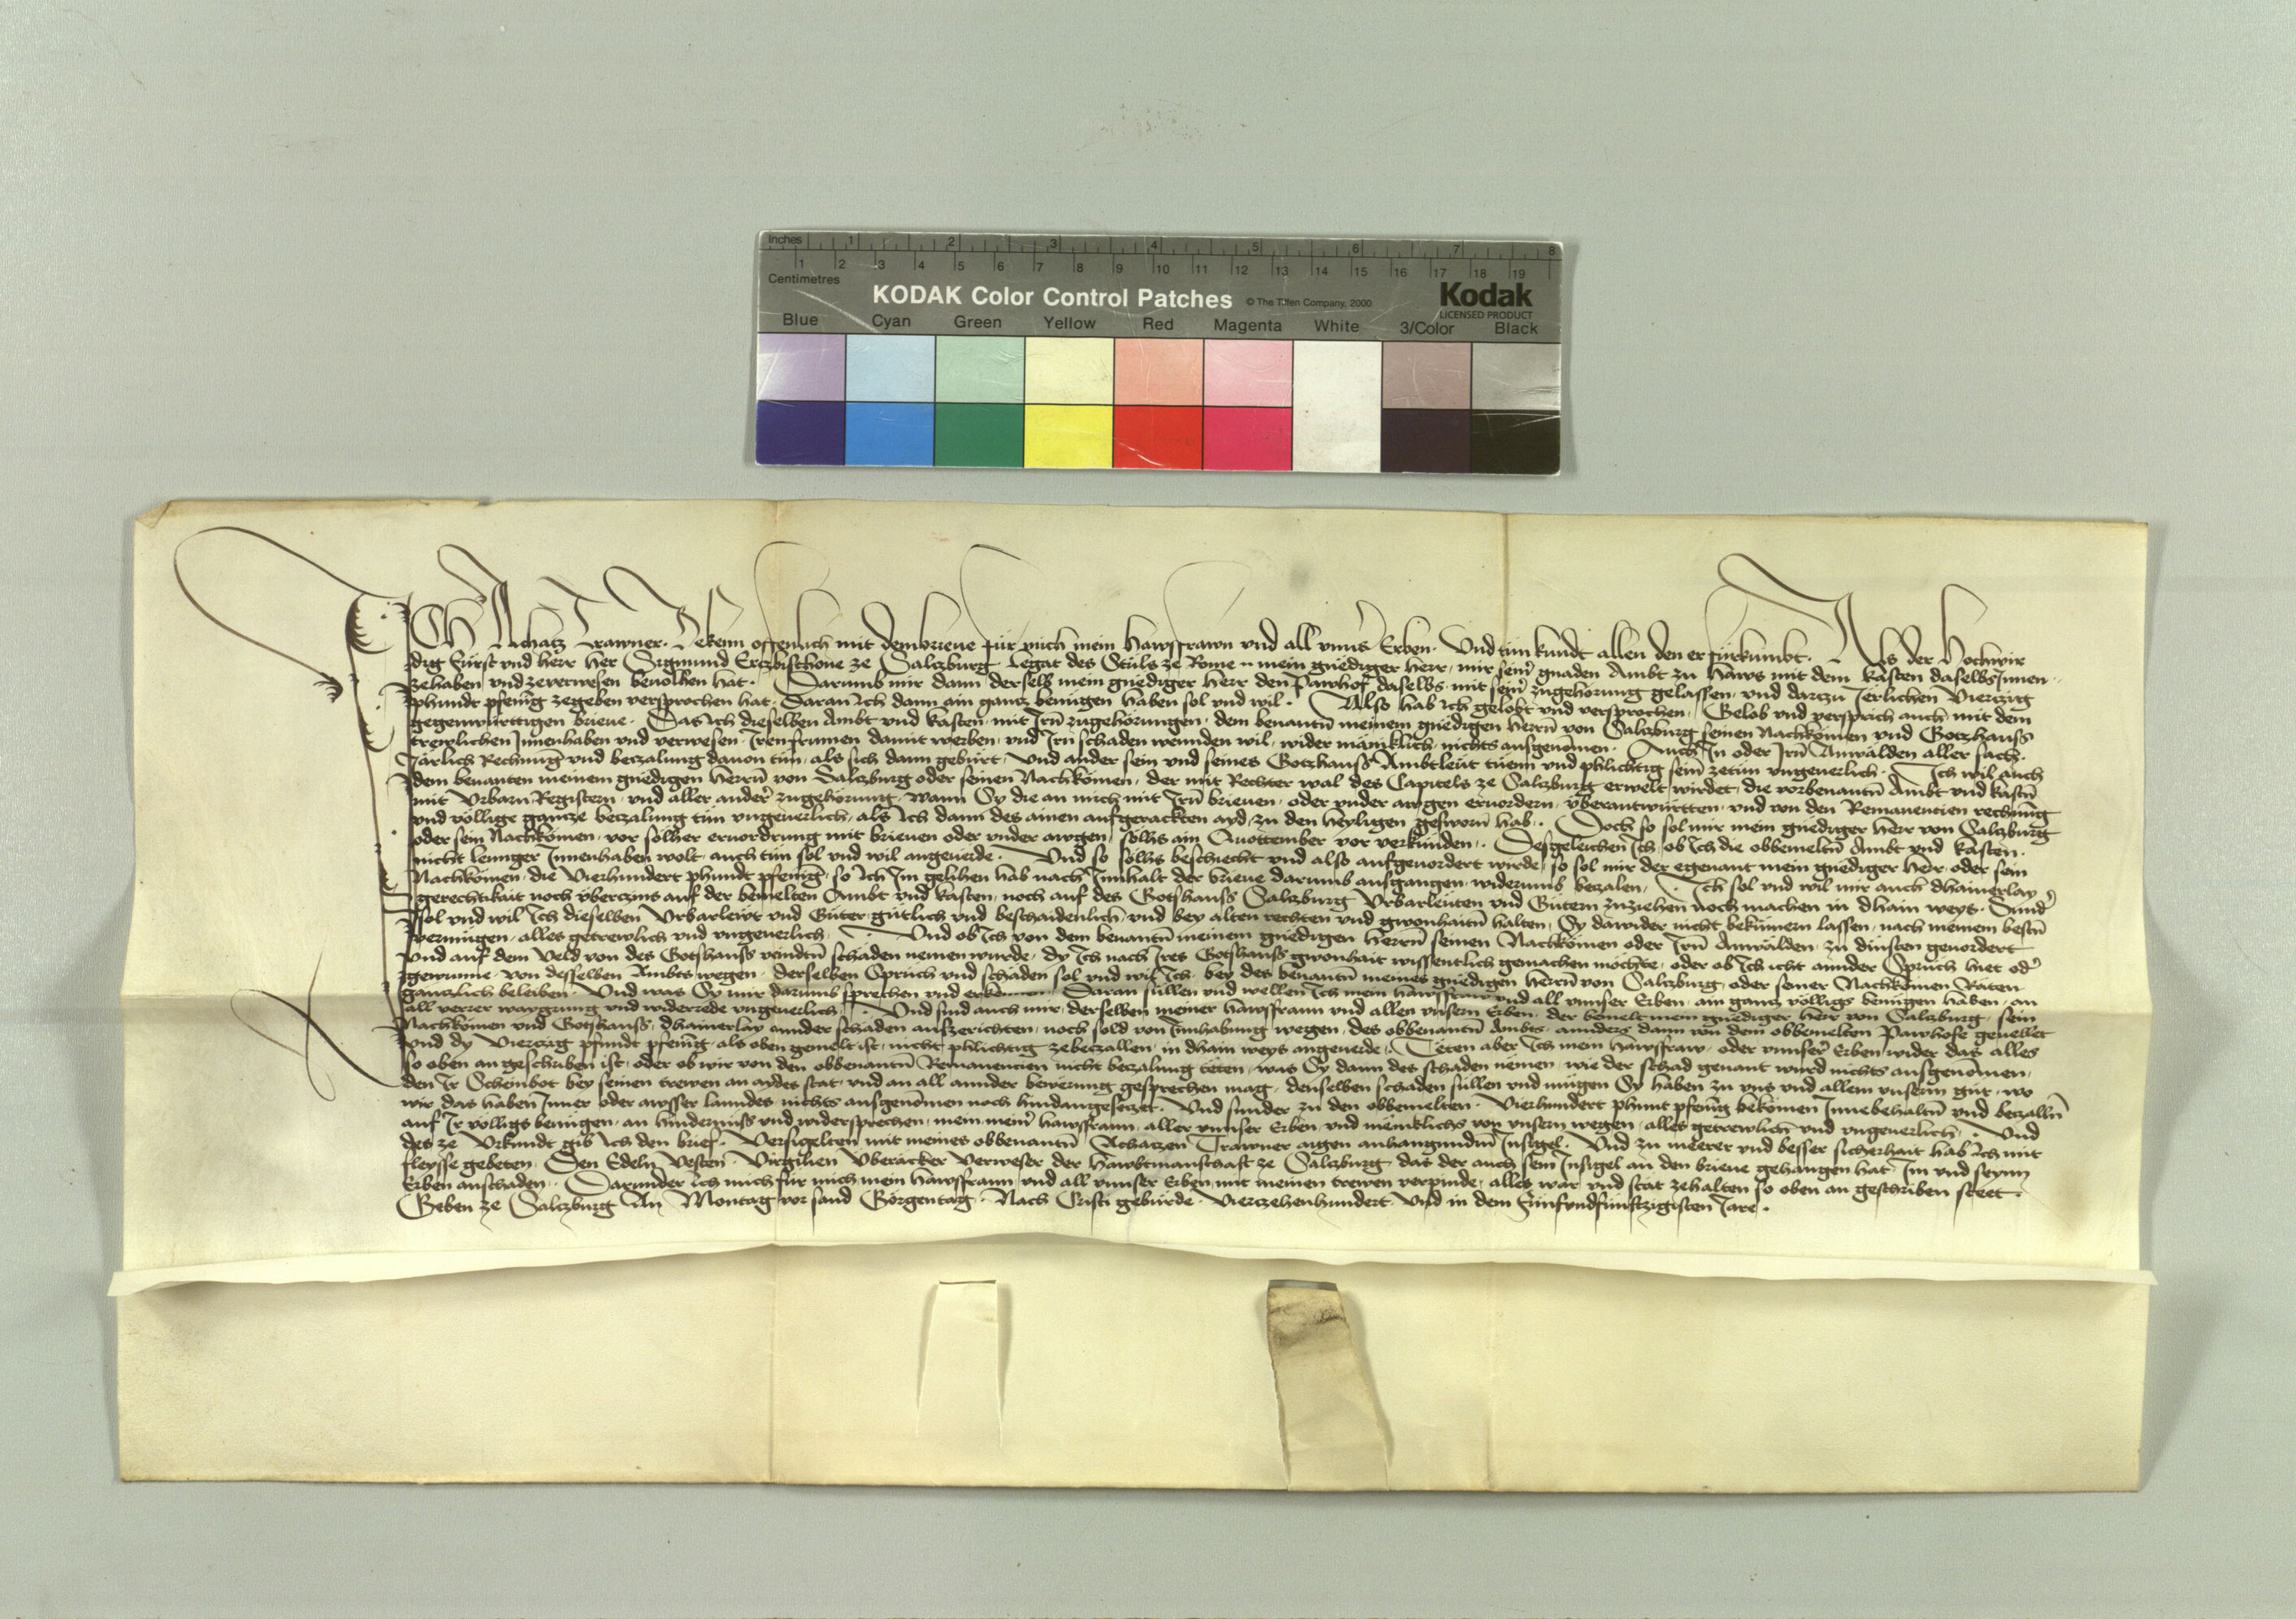 Inches 1 2 3 4 5 6 7 8
1 2 3 4 5 6 7 8 9 10 11 12 13 14 15 16 17 18 19
Centimetres
KODAK Color Control Patches © The Tiffen Company, 2000 Kodak
LICENSED PRODUCT
Blue Cyan Green Yellow Red Magenta White 3/Color Black
ICH Achatz Trawner. Bekenn offenlich mit dem brieue für mich mein hawsfrawn vnd all vnns Erben. Vnd tün kundt allen den er fürkumbt. Als der Hochwir
dig Fürst vnd herr her Sigmund Erczbischoue ze Salczburg Legat des Stuls ze Rome mein gnediger herr, mir seinr gnaden Ambt zu Haws mit dem kasten daselbs Innen
zehaben vnd zeuerwesen beuolhen hat. Darumb mir dann derselb mein gnediger herr den Pawhof daselbs mit seinr zugehorung gelassen vnd darczu Jerlichen Vierczig
phundt pfenig zegeben versprochen hat. Daran Ich dann ain gancz benügen haben sol vnd wil. Also hab ich gelobt vnd versprochen, Gelob vnd versprich auch mit dem
gegenwürttigen brieue. Das Ich dieselben Ambt vnd kasten mit Irn zugehorungen, dem benantn meinem gnedigen herrn von Salczburg seinen Nachkomen vnd Gotzhauss
trewlichen Innenhaben vnd verwesen Iren frumen damit werben vnd Irn schaden wennden wil, wider maniklich nichts ausgenomen. Auch In oder Irn Anwalden aller sach.
Jarlich Rechnug vnd beczalung dauon tün, als sich dann gebürt, Vnd ander sein vnd seines Gotzhauss Ambtleut tuenn vnd phlichtig sein zetün vngeuerlich. Ich wil auch
dem benanten meinem gnedigen herrn von Salczburg oder seinen Nachkomen, der mit Rechter wal des Capitels ze Salczburg erwelt wirdet, die vorbenantn Ambt vnd kastn
mit Vrbarn Registern vnd aller anderr zugehorung, wann Sy die an mich mit Irn brieuen oder vnder awgen eruordern, vberantwürtten, vnd von den Remanencien rechnüg
vnd völlige gantze beczalung tün vngeuerlich, als Ich dann des ainen aufgerackten ayd, zu den heyligen gesworn hab. Doch so sol mir mein gnediger herr von Salczburg
oder sein Nachkomen, vor solher eruordrung mit brieuen oder vnder awgen, solhs ain Quottember vor verkünden. Desgeleichen Ich, ob Ich die obbemeltn Ambt vnd kasten.
nicht lennger Innenhaben wolt, auch tün sol vnd wil angeuerde. Vnd so solhs beschiecht vnd also aufgeuordert wirde, so sol mir der egenant mein gnediger herr oder sein
Nachkomen, die Vierhundert phundt pfenig, so Ich Im gelihen hab nach Innhalt der brieue darumb ausgangen, widerumb bezalen, Ich sol vnd wil mir auch dhainerlay
gerechtikait noch vberczins auf der bemelten Ambt vnd kasten, noch auf des Gotshauss Salczburg Vrbarleuten vnd Gütern zuziehen noch machen in dhain weys. Sundr
sol vnd wil Ich dieselben Vrbarlewt vnd Güter gütlich vnd beschaidenlich, vnd bey alten rechten vnd gwonhaitn halten, Sy dawider nicht bekümern lassen, nach meinem bestn
vermügen, alles getrewlich vnd vngeuerlich. Vnd ob Ich von dem benantn meinem gnedigen herrn seinen Nachkomen oder Irn Anwälden, zu dinsten geuordert
vnd auf dem Veld von des Gotshauss veindtn schaden nemen wurde, dy Ich nach Ires Gotshauss gwonhait wissentlich gemachen möchte, oder ob Ich icht annder Sprüch hiet odr
gewunne, von desselben Ambts wegen, derselben Sprüch vnd schäden sol vnd wil Ich, bey des benantn meines gnedigen herrn von Salczburg, oder seiner Nachkomen Räten
gänczlich beleiben. Vnd was Sy mir darumb sprechen vnd Daran süllen vnd wellen Ich mein hawsfraw vnd all vnnser Erben, ain gancz völligs benügen haben, an
all verrer waygrung vnd widerrede vngeuerlich. Vnd sind auch mir, derselben meiner hawsfrann vnd allen vnsern Erben, der bemelt mein gnediger herr von Salczburg, sein
Nachkomen vnd Gotshauss, dhainerlay annder schaden aufzerichten, noch sold von Innhabung wegen, des obbenantn Ambts, annders dann von dem obbemelten Pawhofe geuellet
vnd dy Vierczig phundt pfenig als oben gemelt ist, nicht phlichtig zebeczallen, in dhain weys angeuerde. Teten aber Ich mein hawsfraw, oder vnnser Erben, wider das alles
so oben angeschriben ist, oder ob wir von den obbenantn Remanencien nicht beczalung teten, was Sy dann des schaden nemen, wie der schad genant wurd nichts ausgenomen,
den Ir Scheinbot bey seinen trewen an aydes stat, vnd an all annder bewerung gesprechen mag, denselben schaden süllen vnd mügen Sy haben zu vns vnd allem vnserm güt, wo
wir das haben Inner oder awsser lanndes nichts ausgenomen noch hindangesetzet. Vnd sunder zu den obbemelten Vierhundert phunt pfenig bekomen Innebehaltn vnd beczalln
auf Ir völligs benügen, an hindernüss vnd widersprechen, mein meinr hawsfrann, aller vnnser Erben, vnd meniklichs von vnsern wegen, alles getrewlich vnd vngeuerlich. Vnd
des ze Vrkundt gib Ich den brief. Versigelten mit meines obbenantn Achaczen Trawner aigen anhangundm Insigel. Vnd zu meerer vnd besser sicherhait hab Ich mit
fleysse gebeten, Den Edeln Vesten Virgilien Vberäcker Verweser der Hawbtmanschaft ze Salczburg, das der auch sein Insigel an den brieue gehangen hat, Im vnd seynn
Erben anschaden. Darunder Ich mich für mich mein hawsfrann, vnd all vnnser Erben, mit meinen trewen verpinde, alles war vnd stat zehalten so oben an geschriben steet.
Geben ze Salczburg An Montag vor sand Görgentag. Nach Cristi gebürde Vierczehenhundert Vnd in dem Fünfvndfünftzigisten Jare.